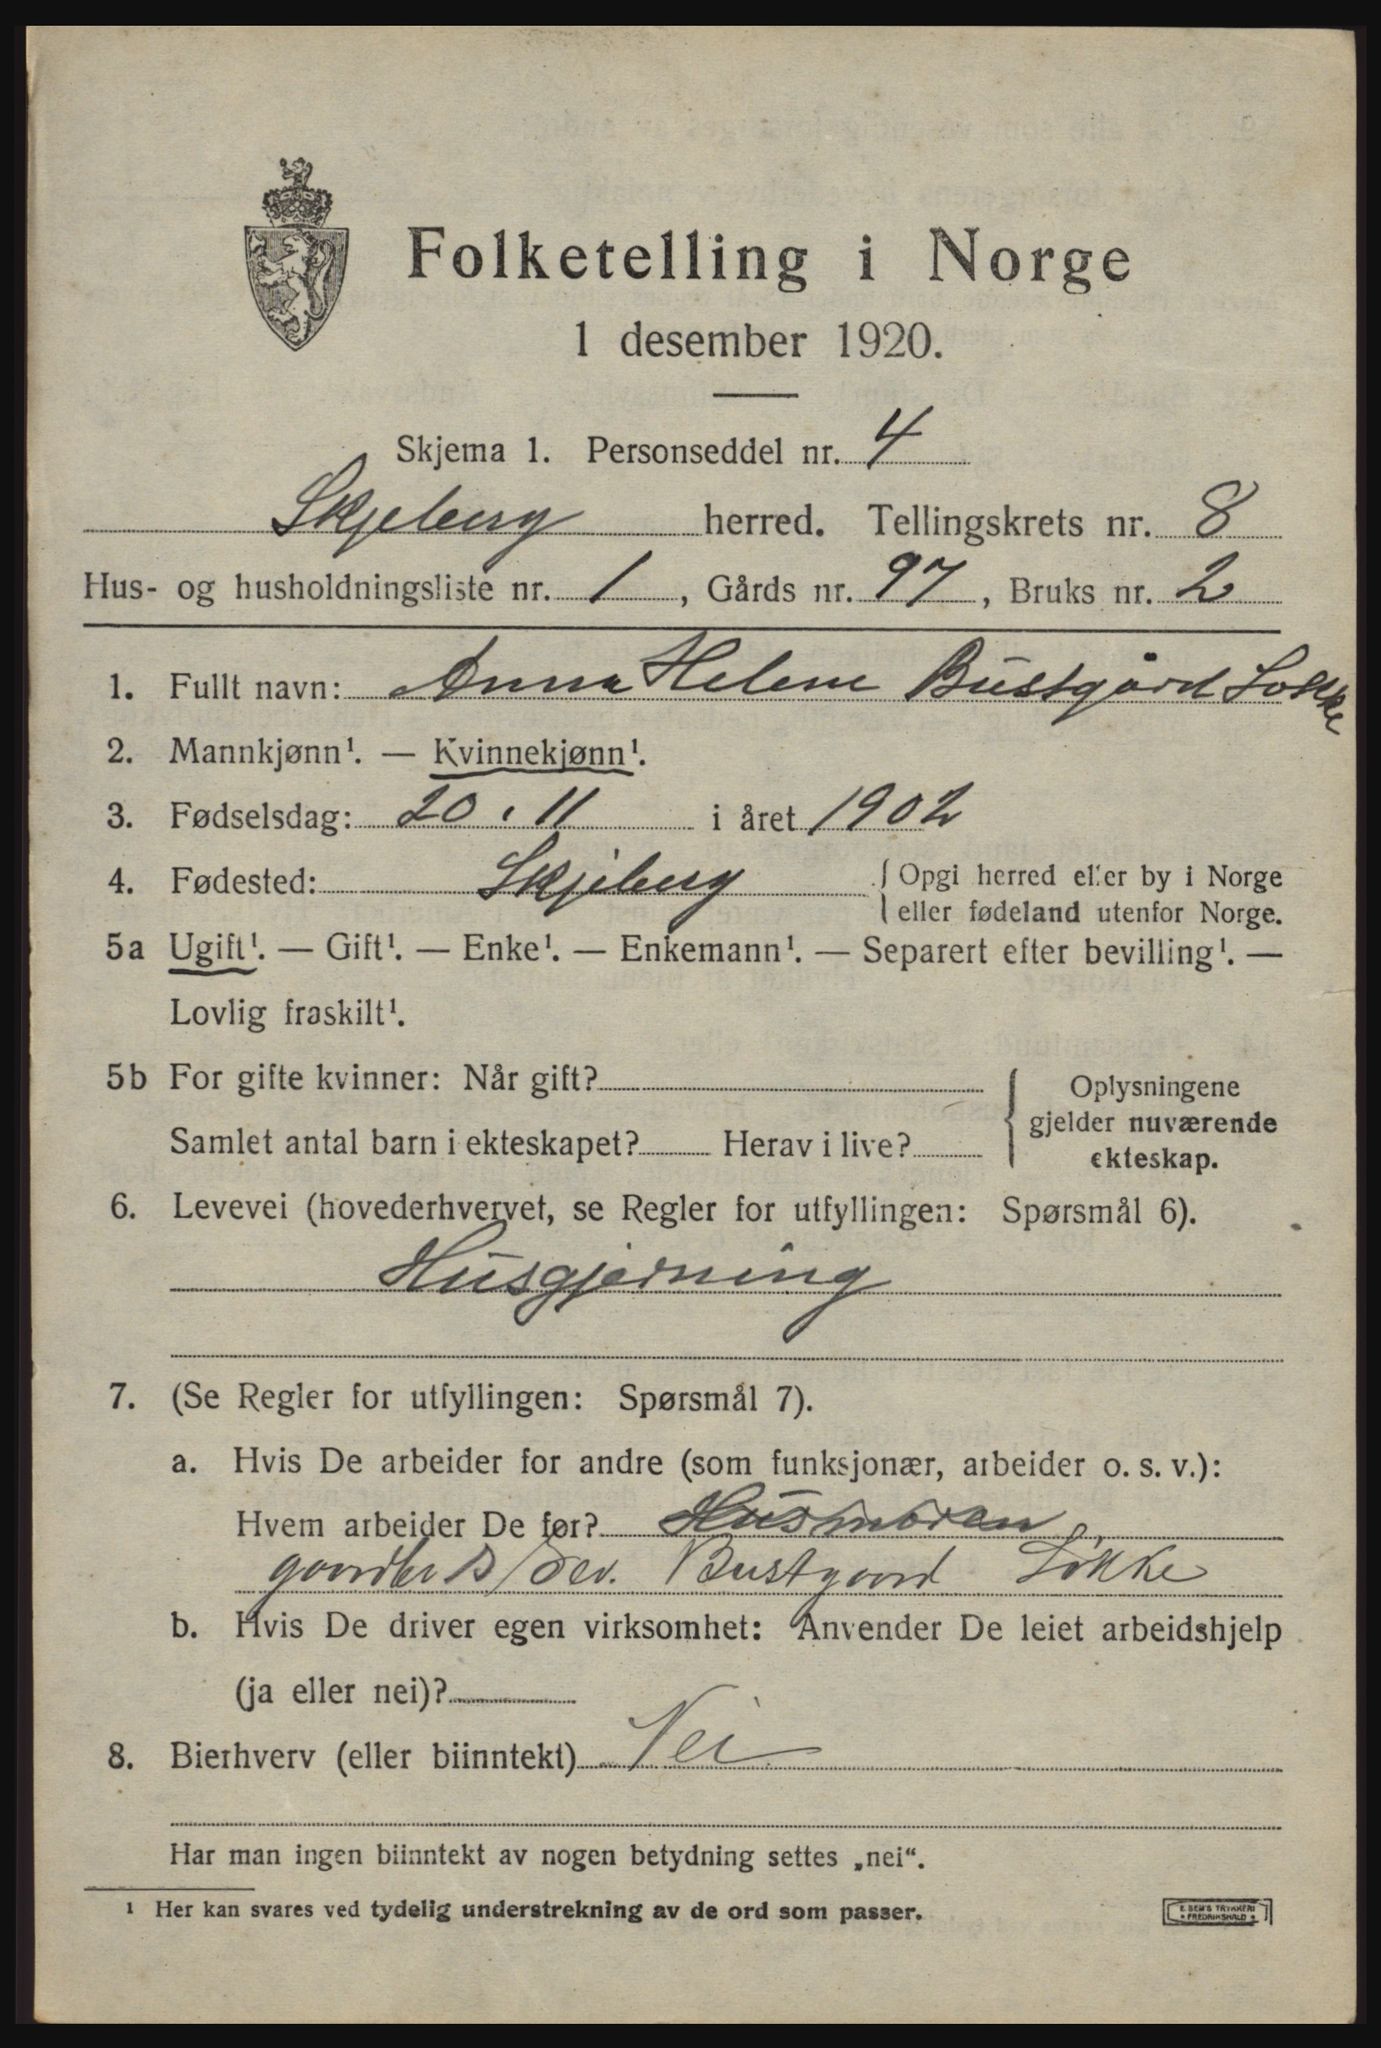 Folketelling i Norge
1 desember 1920.
Skjema 1. Personseddel nr. 4
Skjeberg herred. Tellingskrets nr. 8
Hus- og husholdningsliste nr. 1, Gårds nr. 97, Bruks nr. 2
1. Fullt navn: Anna Helene Bustgård Løkke
2. Mannkjønn¹. — Kvinnekjønn¹.
3. Fødselsdag: 20. 11 i året 1902
4. Fødested: Skjeberg { Opgi herred eller by i Norge
eller fødeland utenfor Norge.
5a Ugift¹. — Gift¹. — Enke¹. — Enkemann¹. — Separert efter bevilling¹. —
Lovlig fraskilt¹.
5b For gifte kvinner: Når gift? { Oplysningene
gjelder nuværende
Samlet antal barn i ekteskapet? Herav i live?
ekteskap.
6. Levevei (hovederhvervet, se Regler for utfyllingen: Spørsmål 6).
Husgjerning
7. (Se Regler for utfyllingen: Spørsmål 7).
a. Hvis De arbeider for andre (som funksjonær, arbeider o. s. v.):
Hvem arbeider De før? Husmoren
Bustgaard Løkke
b. Hvis De driver egen virksomhet: Anvender De leiet arbeidshjelp
(ja eller nei)?
8. Bierhverv (eller biinntekt) Nei
Har man ingen biinntekt av nogen betydning settes „nei“.
¹ Her kan svares ved tydelig understrekning av de ord som passer.
E. SEM'S TRYKKERI
• FREDRIKSHALD •